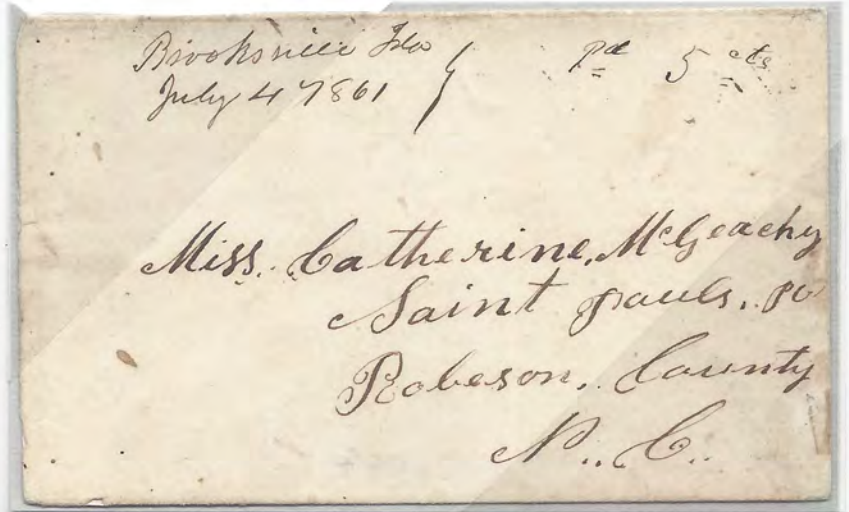 Brooksville Fla
July 4 1861
Pd 5 cts
Miss. Catherine. McGeachy
Saint Pauls. PO
Robeson. County
N.. C..